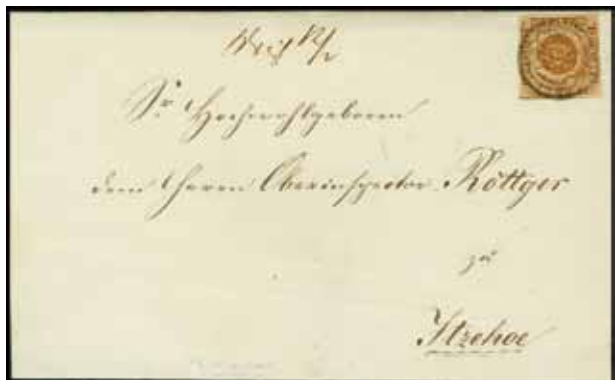 Sr Hochwohlgeboren
dem Herrn Oberinspector Röttger
zu
Itzehoe